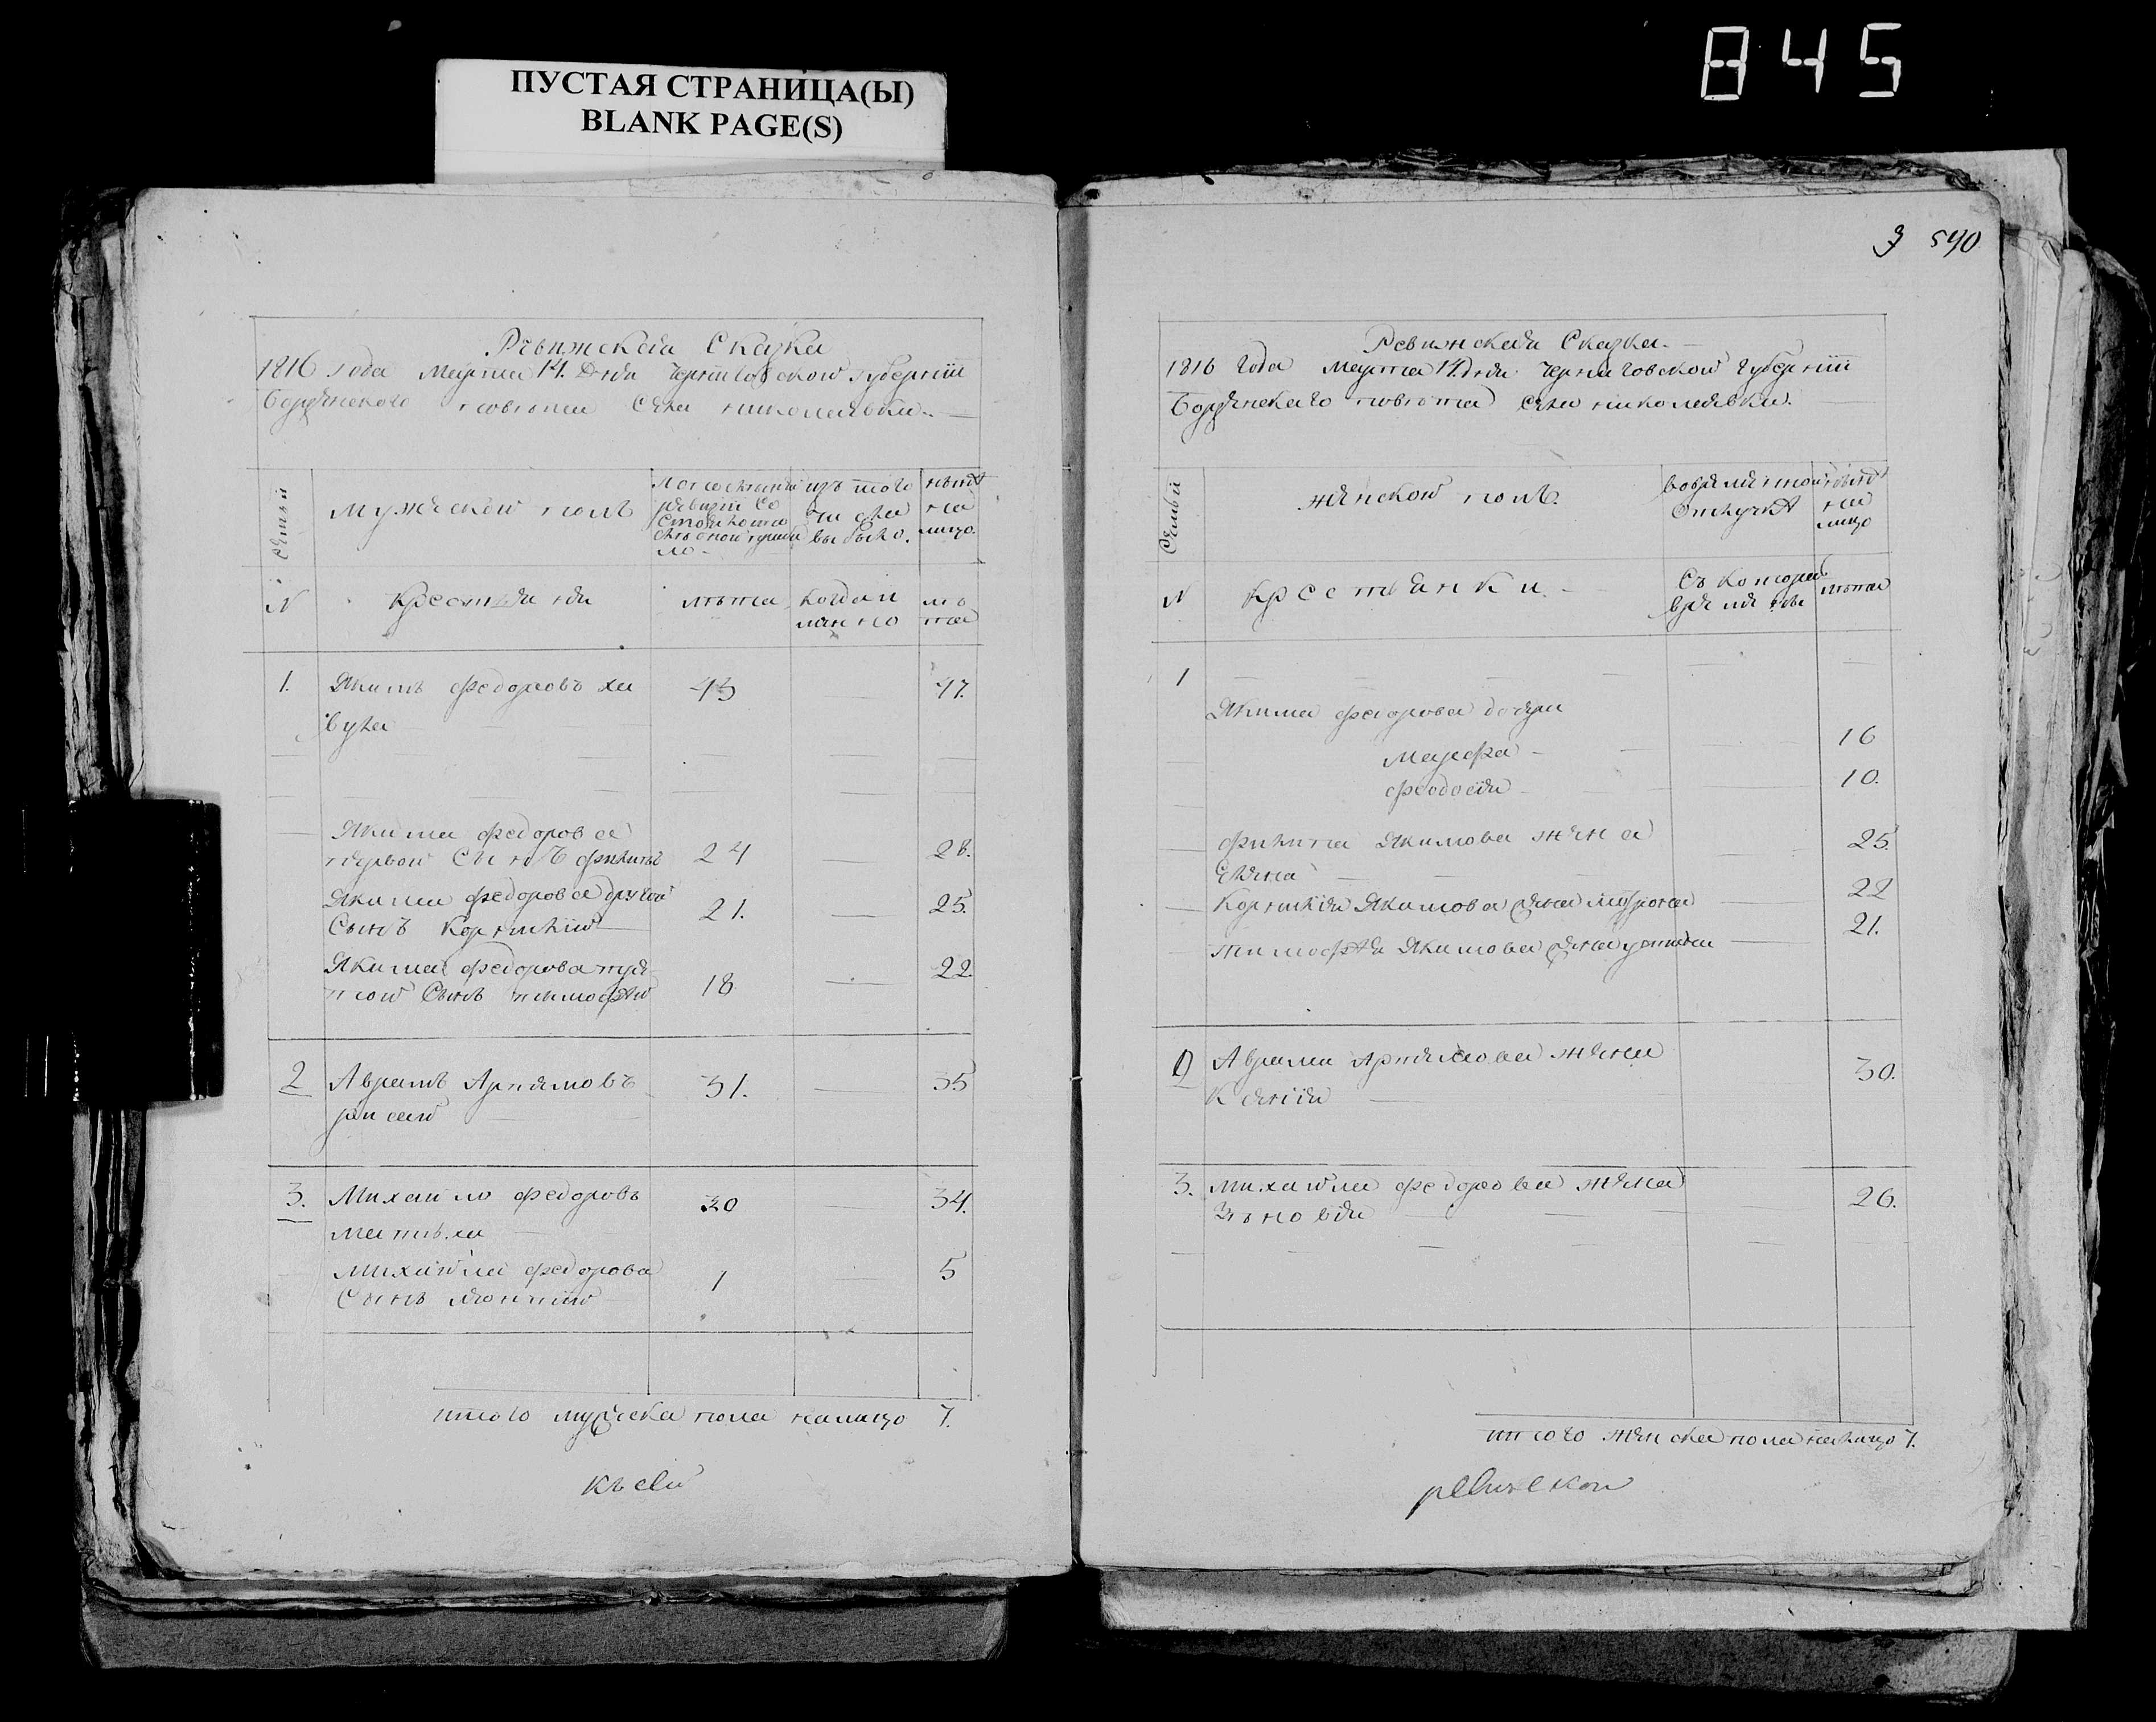 ПУСТАЯ СТРАНИЦА(Ы)
BLANK PAGE(S)
845
Ревижская Сказка
1816 года Марта 14. Дня Черниговской губернии
Борзенского повета села николаевки.
Семьи
Мужеской полъ
По последней
ревизии со
стояло и по
изъ того
числа
выбыло.
ныне
на
лицо.
N
Крестьяня
лѣта
когда и
лѣ
та
1. Якимъ федоровъ ха 43 47.
вула
Якима федорова
первой сынъ филипъ 24 28.
Якима федорова другой
Сынъ Корнилий 21. 25.
Якима федорова тре
той Сынъ тимофей 18 22.
2 Аврамъ Артемовъ 31. 35
3. Михайло федоровъ 30 34.
Михайла федорова
Сынъ 1 5
итого мужеска пола налицо 7.
къ сей
3 590
Ревижская Сказка.
1816 Года Марта 14. Дня Черниговской Губернии
Борзенскаго повета села николаевки.
Семьи
женской полъ.
во временной
отлучке
ныне
на
лицо
N
крестьянки.
Съ котораго
времяни
лѣта
1
Якима федорова дочери
Марфа 16
феодосия 10.
филипа Якимова жена 25.
Елена
Корнилия Якимова жена 22
тимофея Якимова жена 21.
2 Аврама Артемова жена 30.
Ксения
3. Михайла федорова жена 26.
Зѣновия
итого женска пола налицо 7.
ревижской